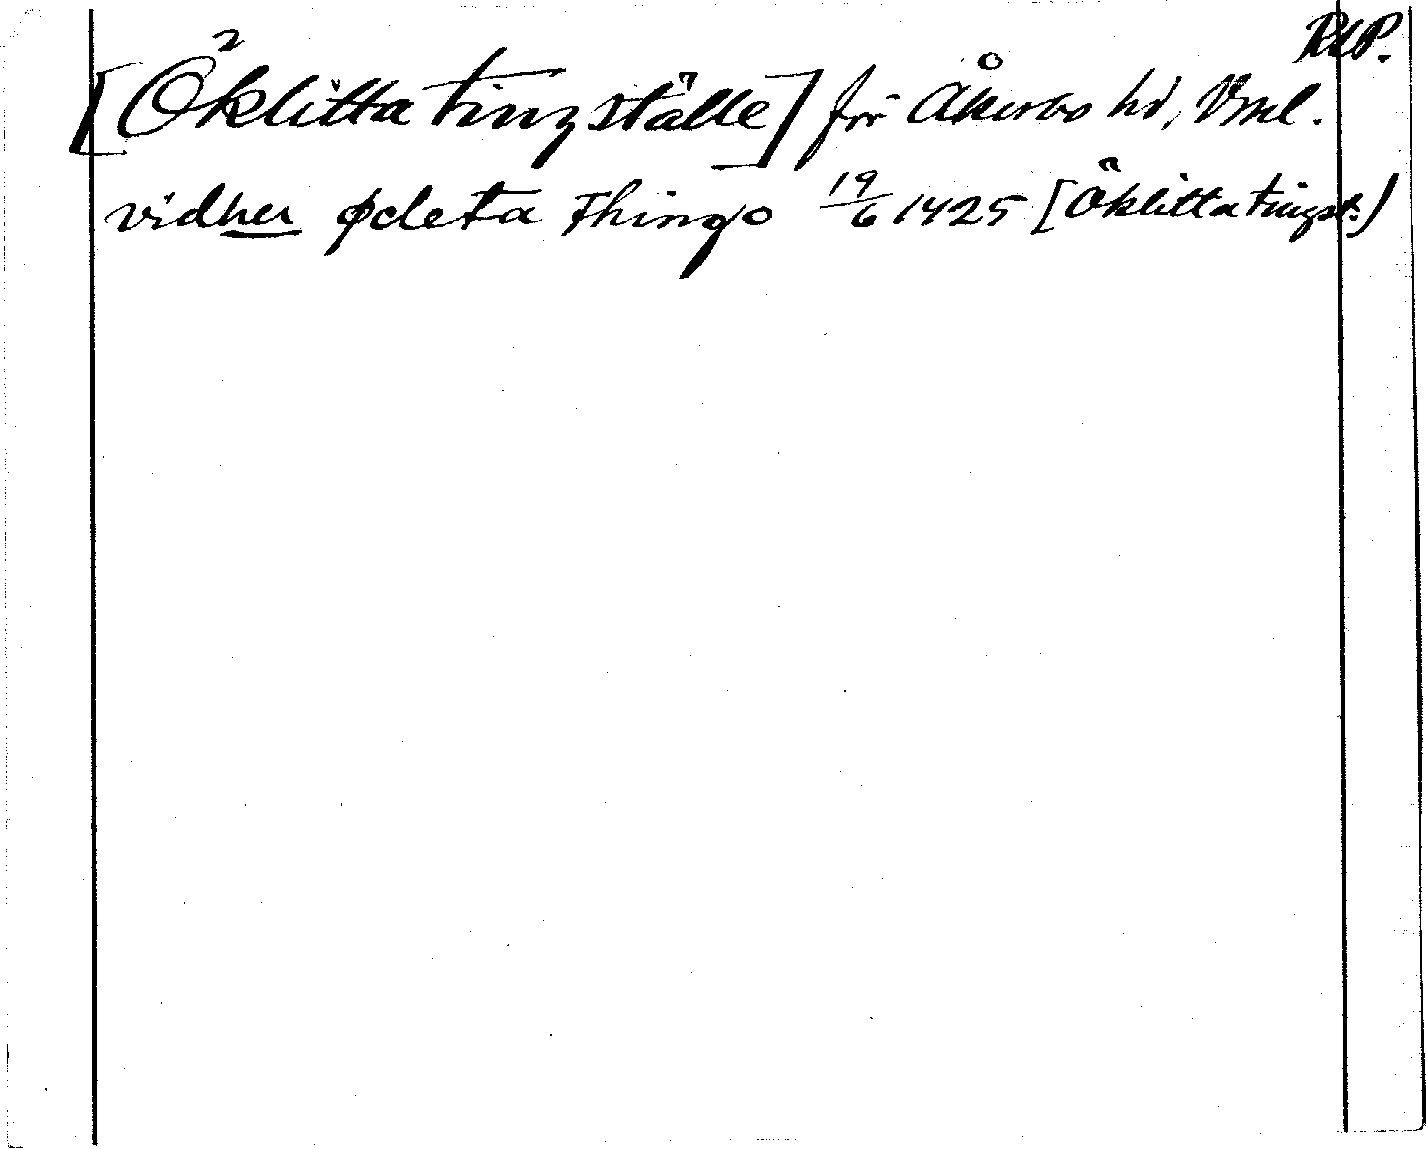 RAP.
[Öklitta tingställe] för Åkerbo hd, Vml.
vidher ødeta Thingo 19/6 1425 [Öklitta tingst.]